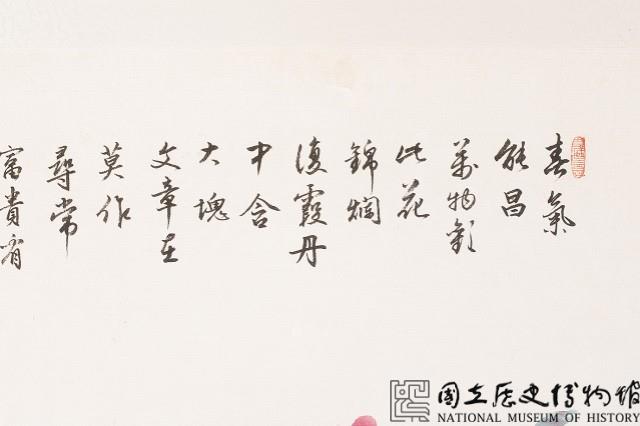 春氣
能昌
萬物歡
此花
錦爛
復霞丹
中含
大塊
文章在
莫作
尋常
富貴看
國立歷史博物館
NATIONAL MUSEUM OF HISTORY